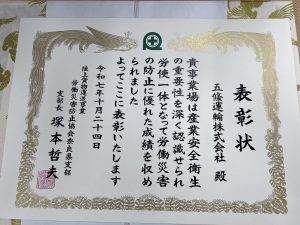 表彰状
五條運輸株式会社 殿
貴事業場は産業安全衛生
の重要性を深く認識せられ
労使一体となって労働災害
の防止に優れた成績を収め
られました
よってここに表彰いたします
令和七年十月二十四日
陸上貨物運送事業
労働災害防止協会奈良県支部
支部長 塚本哲夫